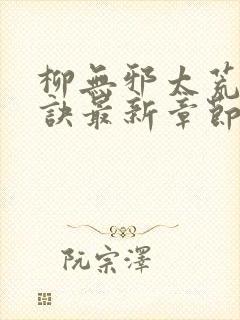 柳無邪太荒
訣最新章節
阮宗澤